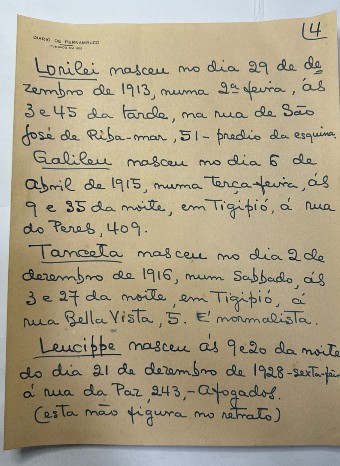 14
DIARIO DE PERNAMBUCO
Lorilei nasceu no dia 29 de de
zembro de 1913, numa 2ª feira, ás
3 e 45 da tarde, na rua de São
José de Riba-mar, 51 - predio da esquina.
Galileu nasceu no dia 6 de
abril de 1915, numa terça-feira, ás
9 e 35 da noite, em Tigipió, á rua
do Peres, 409.
Tanceta nasceu no dia 2 de
dezembro de 1916, num Sabbado, ás
3 e 27 da noite, em Tigipió, á
rua Bella Vista, 5. E' normalista.
Leucippe nasceu ás 9 e 20 da noite
do dia 21 de dezembro de 1928 - sexta-feira
á rua da Paz 243, - Afogados.
(esta não figura no retrato)